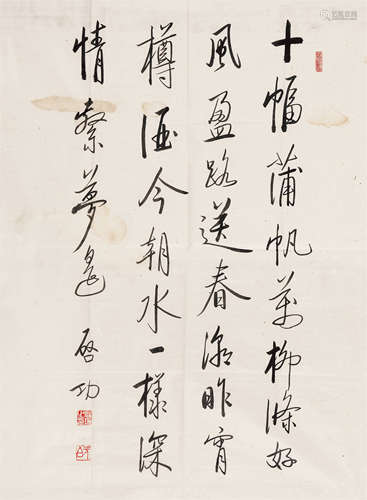 十幅蒲帆萬柳條好
風盈路送春潮昨宵
樽酒今朝水一樣深
情繫夢遙 啓功